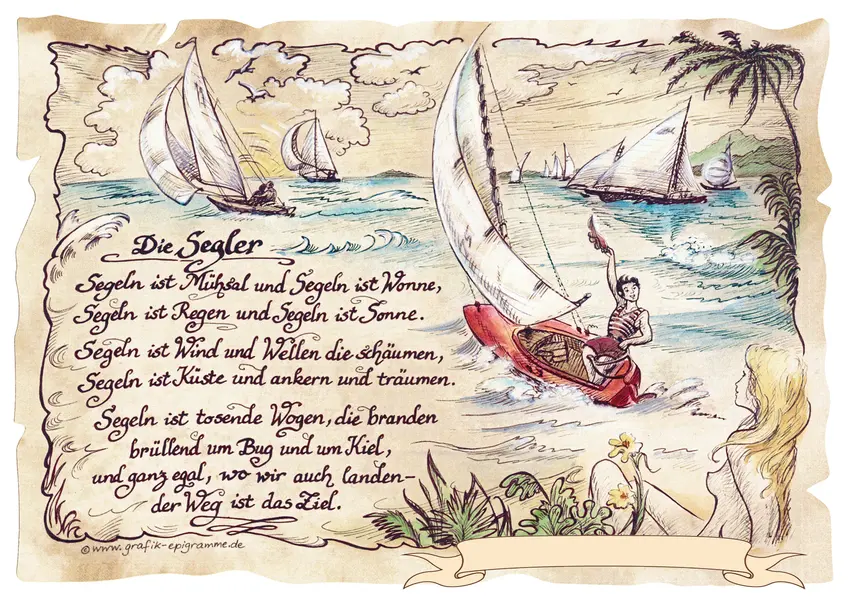 Die Segler
Segeln ist Mühsal und Segeln ist Wonne,
Segeln ist Regen und Segeln ist Sonne.
Segeln ist Wind und Wellen die schäumen,
Segeln ist Küste und ankern und träumen.
Segeln ist tosende Wogen, die branden
brüllend um Bug und um Kiel,
und ganz egal, wo wir auch landen-
der Weg ist das Ziel.
©www.grafik-epigramme.de